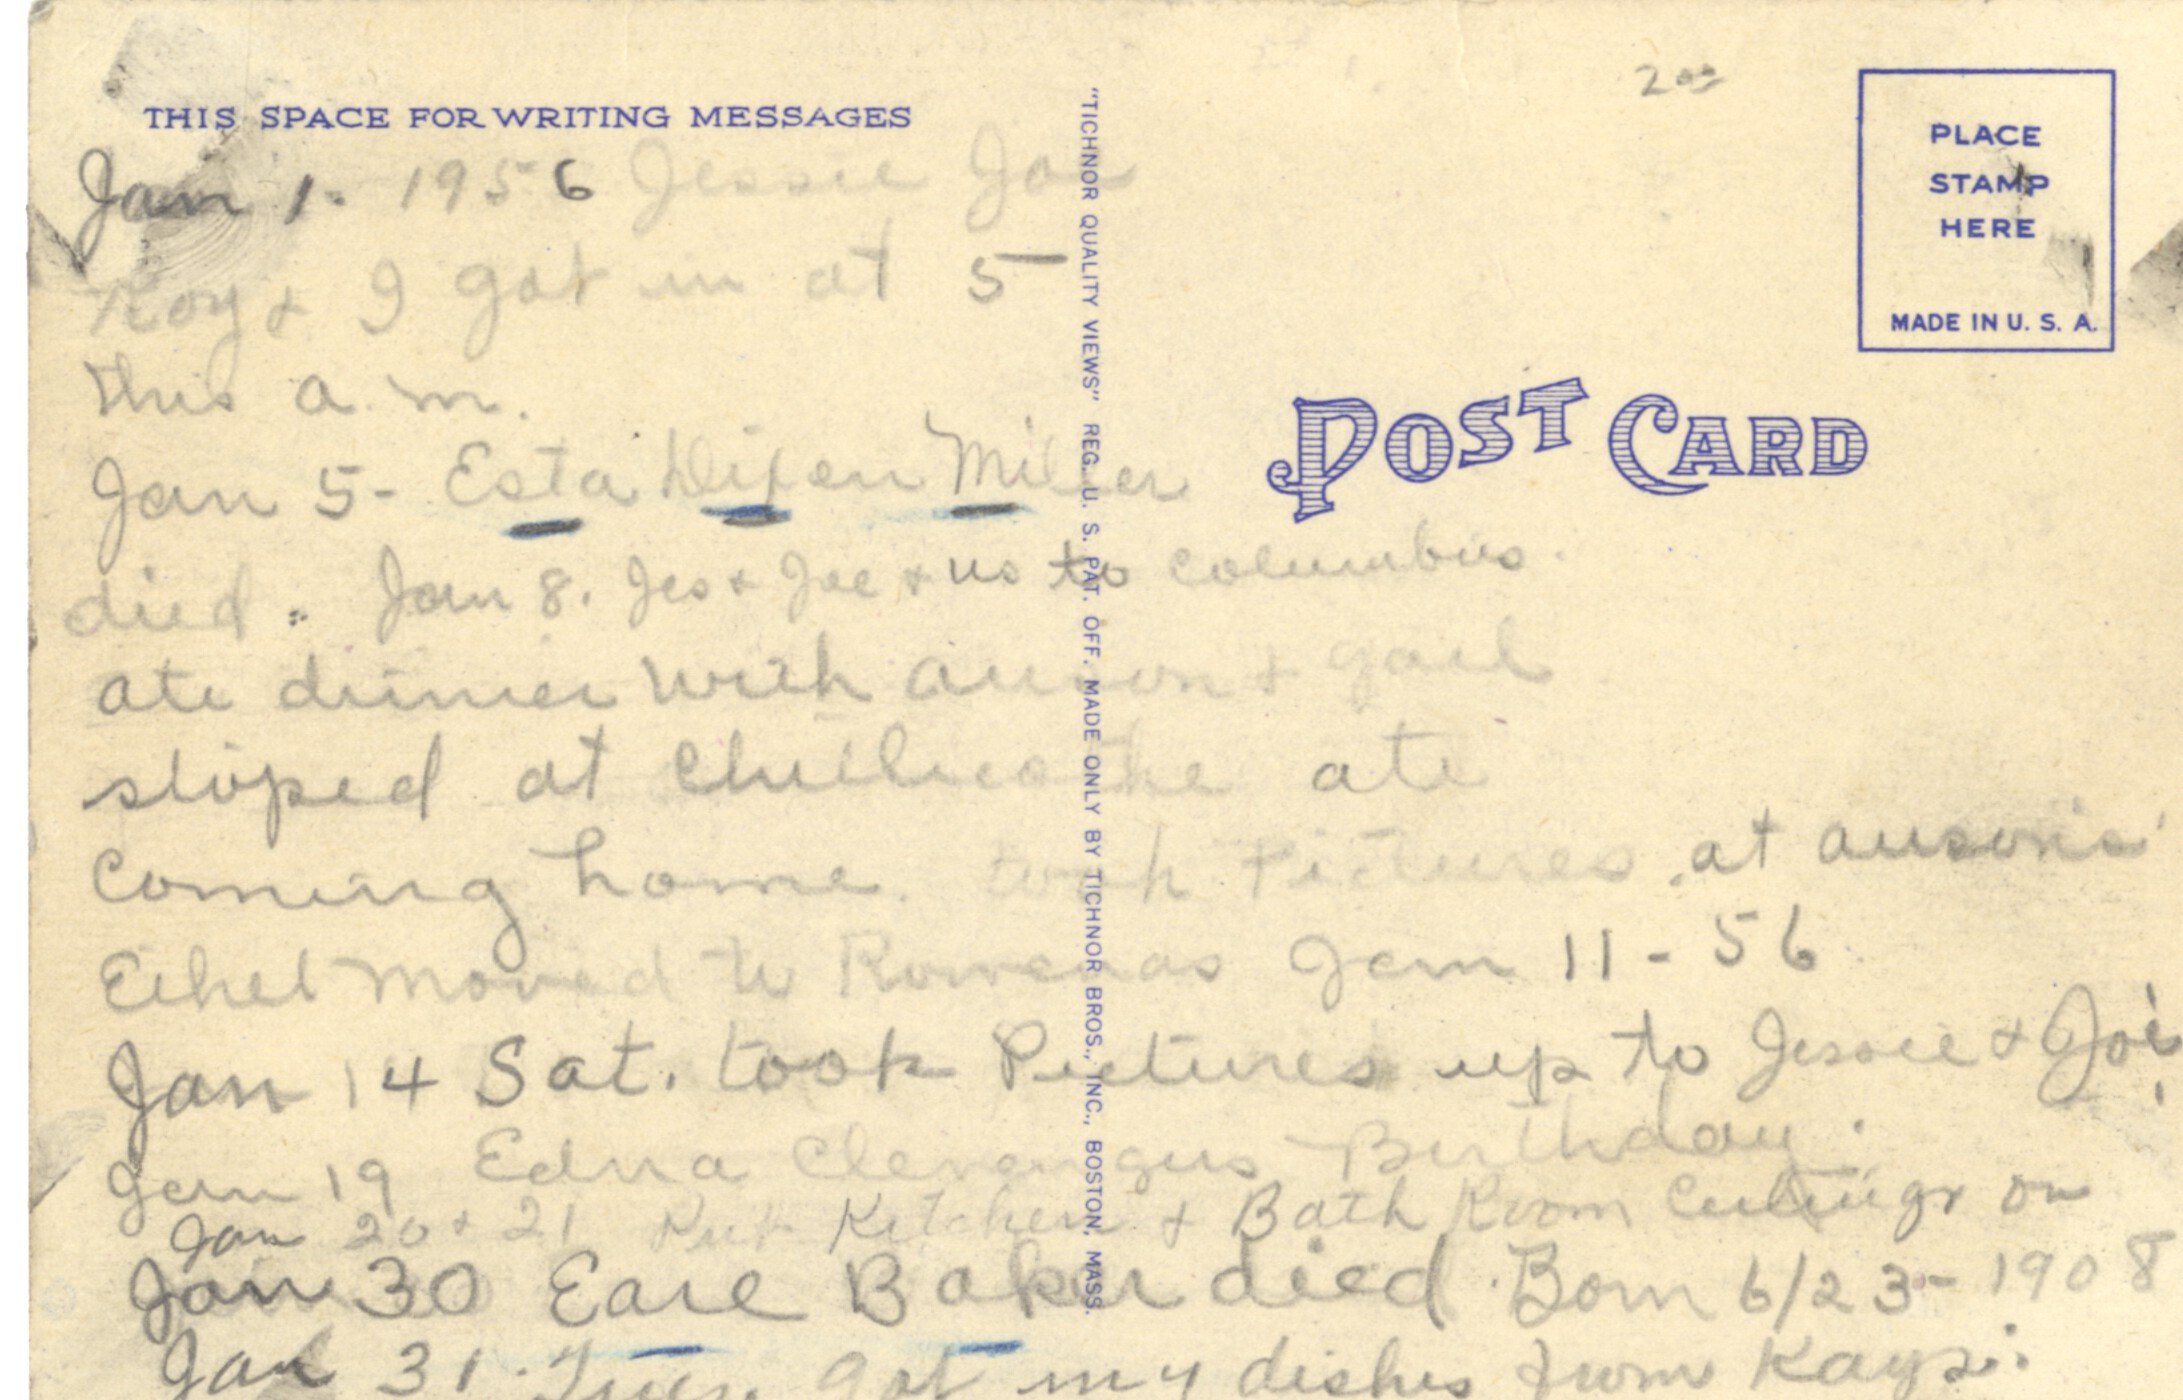 THIS SPACE FOR WRITING MESSAGES
Jan 1. 1956 Jessie Joe
Roy & I got in at 5
this a.m.
Jan 5- Esta Dixen Miller
died. Jan 8. Jes & Joe & us to columbus.
ate dinner with anson & gail
stoped at chillicothe ate
coming home. took Pictures at anson's
Ethel moved to Rowenas Jan 11-56
Jan 14 Sat. took Pictures up to Jessie & Joe's
Jan 19 Edna Clevengers Birthday.
Jan 20 & 21 Put Kitchen & Bath Room Ceilings on
Jan 30 Earl Baker died. Born 6/23-1908
Jan 31. Tues. got my dishes from Kays.
"TICHNOR QUALITY VIEWS" REG. U. S. PAT. OFF. MADE ONLY BY TICHNOR BROS., INC., BOSTON, MASS.
2 00
PLACE
STAMP
HERE
MADE IN U. S. A.
POST CARD